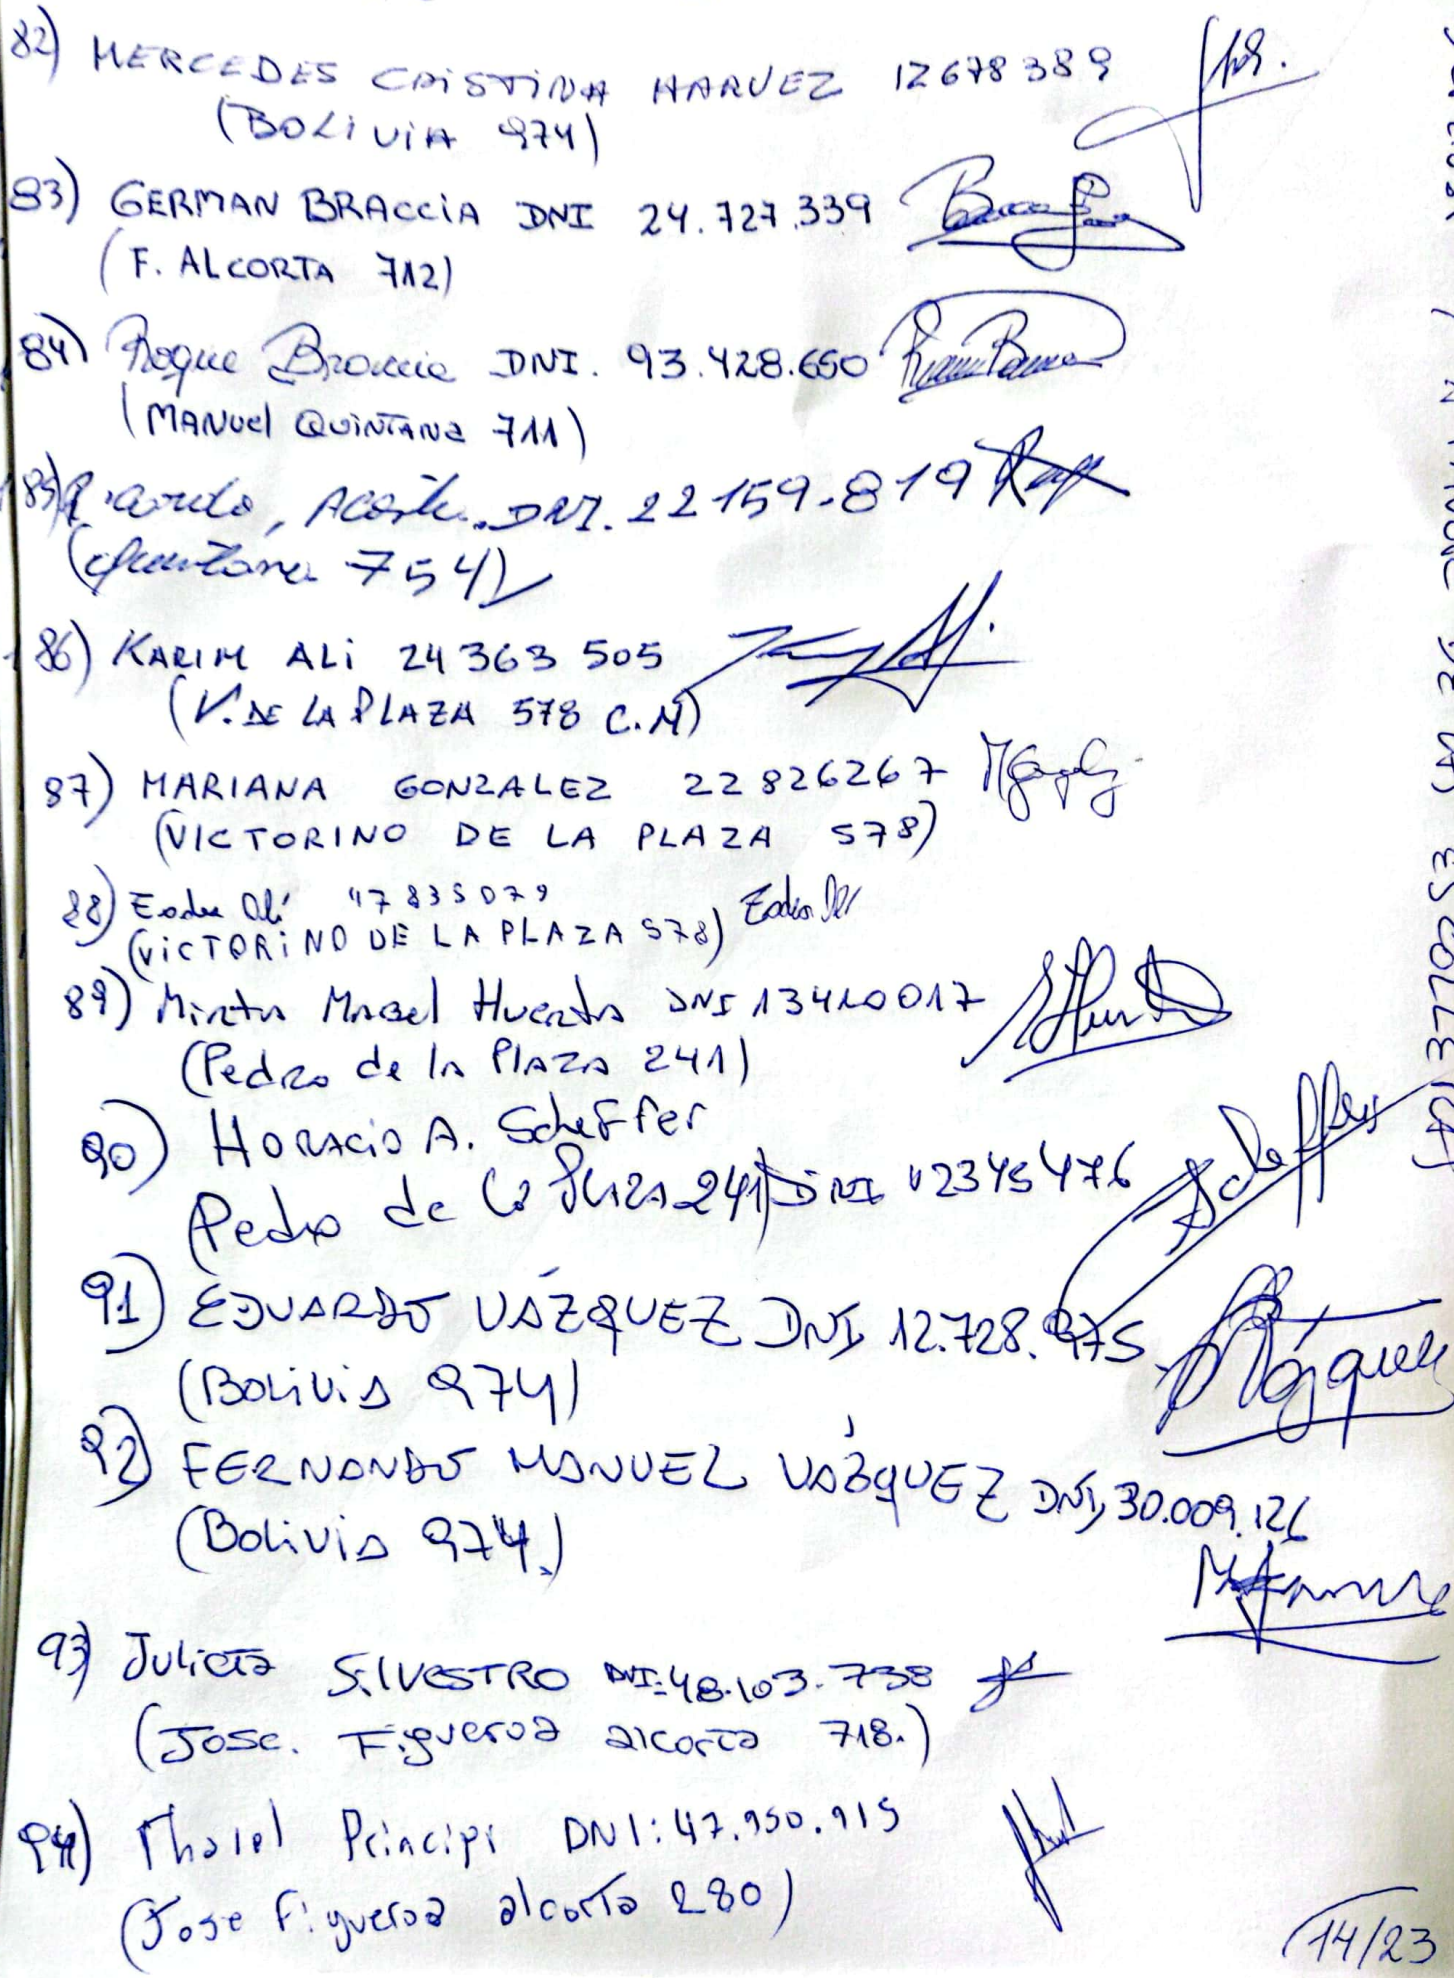 82) MERCEDES CRISTINA HARVEZ 12678389
(BOLIVIA 974)
83) GERMAN BRACCIA DNI 24.727.339
(F. ALCORTA 712)
84) Roque Braccia DNI. 93.428.650
(MANUEL QUINTANA 711)
85) Ricardo, Acosta. DNI. 22159.819
(Quintana 754)
86) KARIM ALI 24363505
(V. DE LA PLAZA 578 C.M)
87) MARIANA GONZALEZ 22826267
(VICTORINO DE LA PLAZA 578)
88) Ali 47835079
(VICTORINO DE LA PLAZA 578)
89) Mirta Mabel Huerta DNI 13410017
(Pedro de la Plaza 241)
90) HORACIO A. Scheffer
(Pedro de la Plaza 241) DNI 12345476
91) EDUARDO VÁZQUEZ DNI 12.728.975
(Bolivia 974)
92) FERNANDO MANUEL VÁZQUEZ DNI 30.009.126
(Bolivia 974.)
93) Julieta SILVESTRO DNI: 48.103.738
(Jose. Figueroa alcorta 718.)
94) Thaiel Principi DNI: 47.950.915
(Jose Figueroa alcorta 280)
14/23